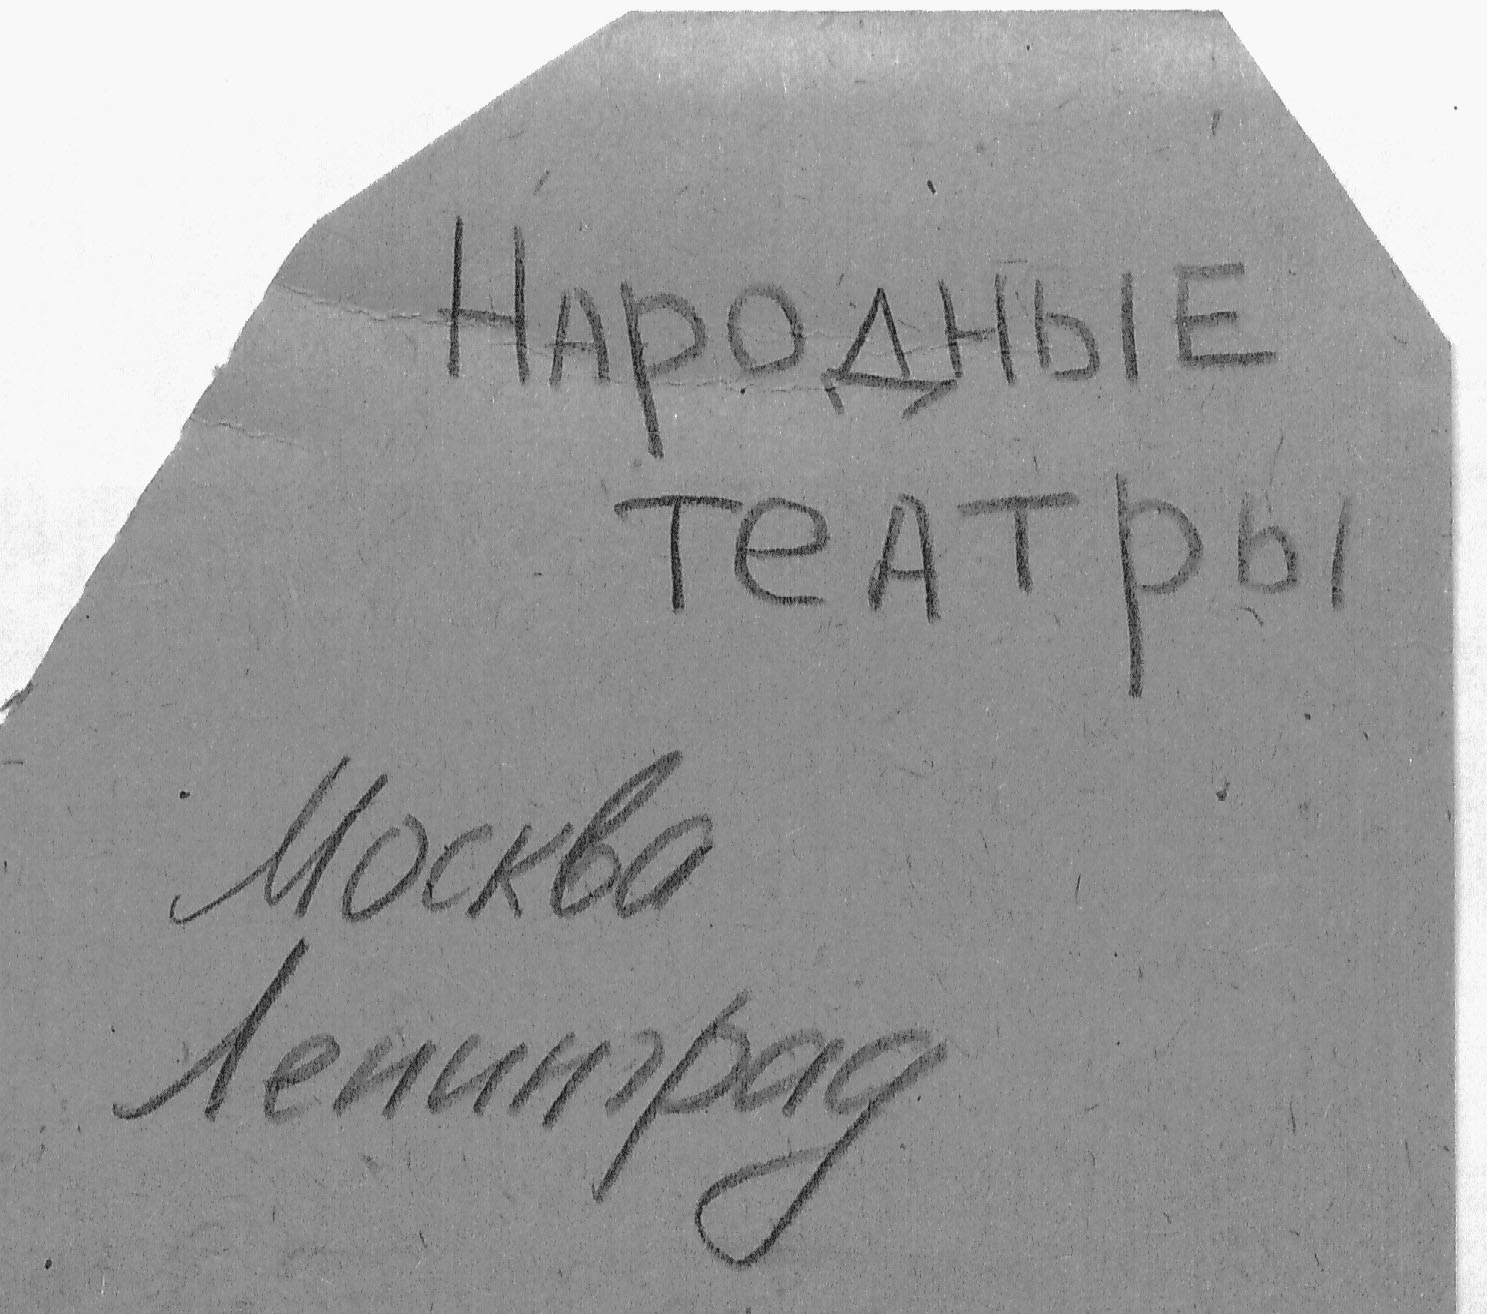 Народные
театры
Москва
Ленинград